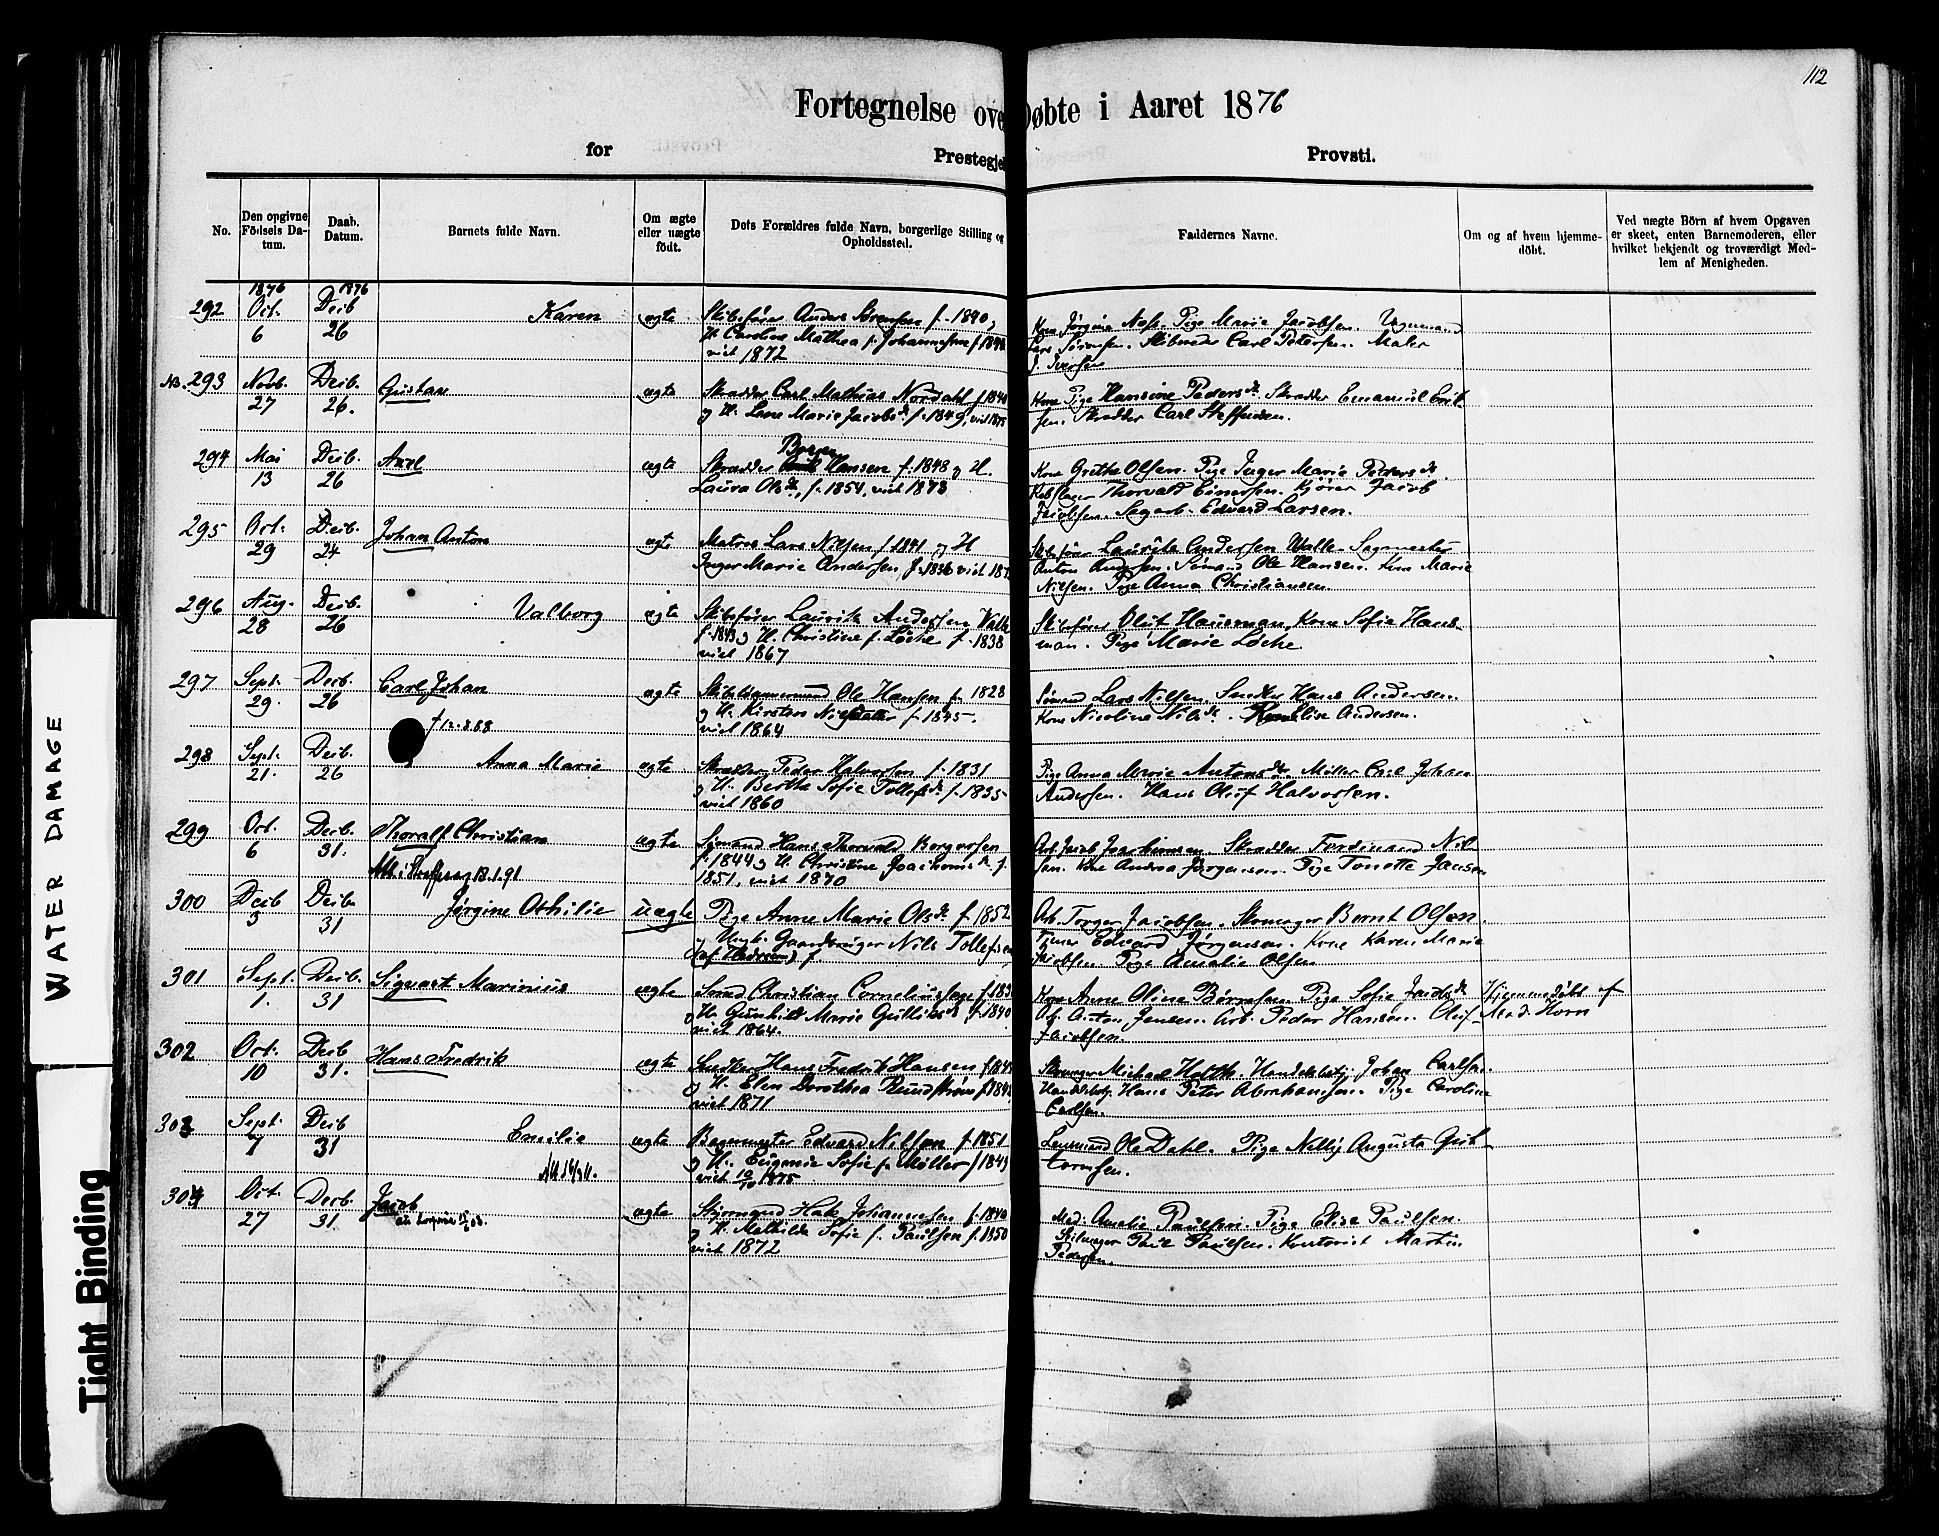 112
Fortegnelse ove Døbte i Aaret 1876
for Prestegjel Provsti.
No.
Den opgivne Födsels Datum.
Daab. Datum.
Barnets fulde Navn.
Om ægte eller uægte födt.
Dets Forældres fulde Navn, borgerlige Stilling og Opholdssted.
Faddernes Navne.
Om og af hvem hjemmedöbt.
Ved uægte Börn af hvem Opgaven er skeet, enten Barnemoderen, eller hvilket bekjendt og troværdigt Medlem af Menigheden.
1876 1876
292 Oct. 6 Decb 26 Karen ægte
Skibsfører Anders Sørensen f. 1840,
H. Caroline Mathea f. Johannesen
viet 1872
Kone Jørgine Næss. Pige Marie Jacobsen.
Lars Sørensen. Carl Petersen. Maler
J. Iversen
No. 293 Novb. 27 Decb. 26. Gustav ægte
Skrædder Carl Mathias Nordahl f. 1848
og H. Lene Marie Jacobsd. f. 1849, viet 1875
Kone Pige Hansine Pedersd. Skrædder Emanuel
Skrædder Carl Steffensen.
294 Mai 13 Decb. 26 Axel ægte
Skrædder Hansen f. 1848 og H.
Laura Olsd., f. 1854, viet 1873
Kone Grethe Olsen. Pige Inger Marie Pedersd.
Thorvald Einersen. Kjører Jacob
Jacobsen. Sagarb. Edvard Larsen.
295 Oct. 29 Decb. 24 Johan Anton ægte
Matros Lars Nilsen f. 1841 og H
Inger Marie Andersen f. 1836 viet
Skibsfører Lauritz Andersen Walle. Sagmester
Anton Andersen. Sømand Ole Hansen. Kone Marie
Nielsen. Pige Anna Christiansen.
296 Aug. 28 Decb. 26 Valborg ægte
Skibsfører Lauritz Andersen Walle
f. 1843 og H. Christine f. Løche f. 1838
viet 1867
Skibsfører Oluf Hausman. Kone Sofie Hausman. Pige Marie Løche.
297 Sept. 29. Decb. 26 Carl Johan ægte
† 12.8.88
Skibstømmermand Ole Hansen f. 1828
og H. Kirsten Nielsdatter f. 1845.
viet 1864
Sømand Lars Nilsen. Snedker Hans Andersen.
Kone Nicoline Nilsd. Elise Andersen.
298 Sept. 21. Decb. 26 Anna Marie ægte
Skrædder Peder Halvorsen f. 1831
og H. Berthe Sofie Tollefsd. f. 1835
viet 1860
Pige Anna Marie Antonsd. Møller Carl Johan
Andersen. Hans Oluf Halvorsen.
299 Oct. 6 Decb. 31. Thoralf Christian ægte
18.1.91
Sømand Hans Thorvald Borgersen
f. 1844 og H. Christine Joachims d. f.
1851, viet 1870
Arb. Jacob Joachimsen. Skrædder Ferdinand Nilsen. Kone Andrea Jørgensen. Pige Tonette Jansen
300 Decb 3 Decb. 31 Jørgine Othilie uægte
Pige Anne Marie Olsd. f. 1852
og Ungk. Gaardbruger Nils Tollefsen
(af Hedrum) f
Arb. Torger Jacobsen. Skomager Bernt Olsen.
Tjener Edvard Jørgensen. Kone Karen Marie
Jacobsen. Pige Amalie Olsen
301 Sept. 1. Decb. 31 Siguart Marinius ægte
Christian Corneliussen f.
og H. Gunhild Marie Gulliksd. f. 1840
viet 1864.
Kone Anne Oline Børresen. Pige Sofie Jacobsd.
Anton Jensen. Arb. Peder Hansen. Oluf
Jacobsen.
Hjemmedöbt af
Mad. Horn
302 Oct. 10 Decb 31. Hans Fredrik ægte
Snedker Hans Fredrik Hansen f.
og H. Elen Dorothea Rundstrøm f.
viet 1871
Skomager Michael Holth. Handelsbetj. Johan Carlsen.
Handelsbetj. Hans Peter Abrahamsen. Pige Caroline
Carlsen.
303 Sept. 7 Decb 31 Emilie ægte
Bagermester Edvard Nilsen f. 1851
og H. Eugenie Sofie f. Møller f. 1849
viet 1875
Lensmand Ole Dahl. Pige Nelly Augusta Guttormsen.
304 Oct. 27 Decb. 31. Jacob ægte
Styrmand Johannesen f. 1840
og H. Mathilde Sofie f. Paulsen f. 1850
viet 1872
Mad. Amalie Paulsen. Pige Elise Paulsen.
Paulsen. Kontorist Martin
Pedersen.
WATER DAMAGE
Tight Binding